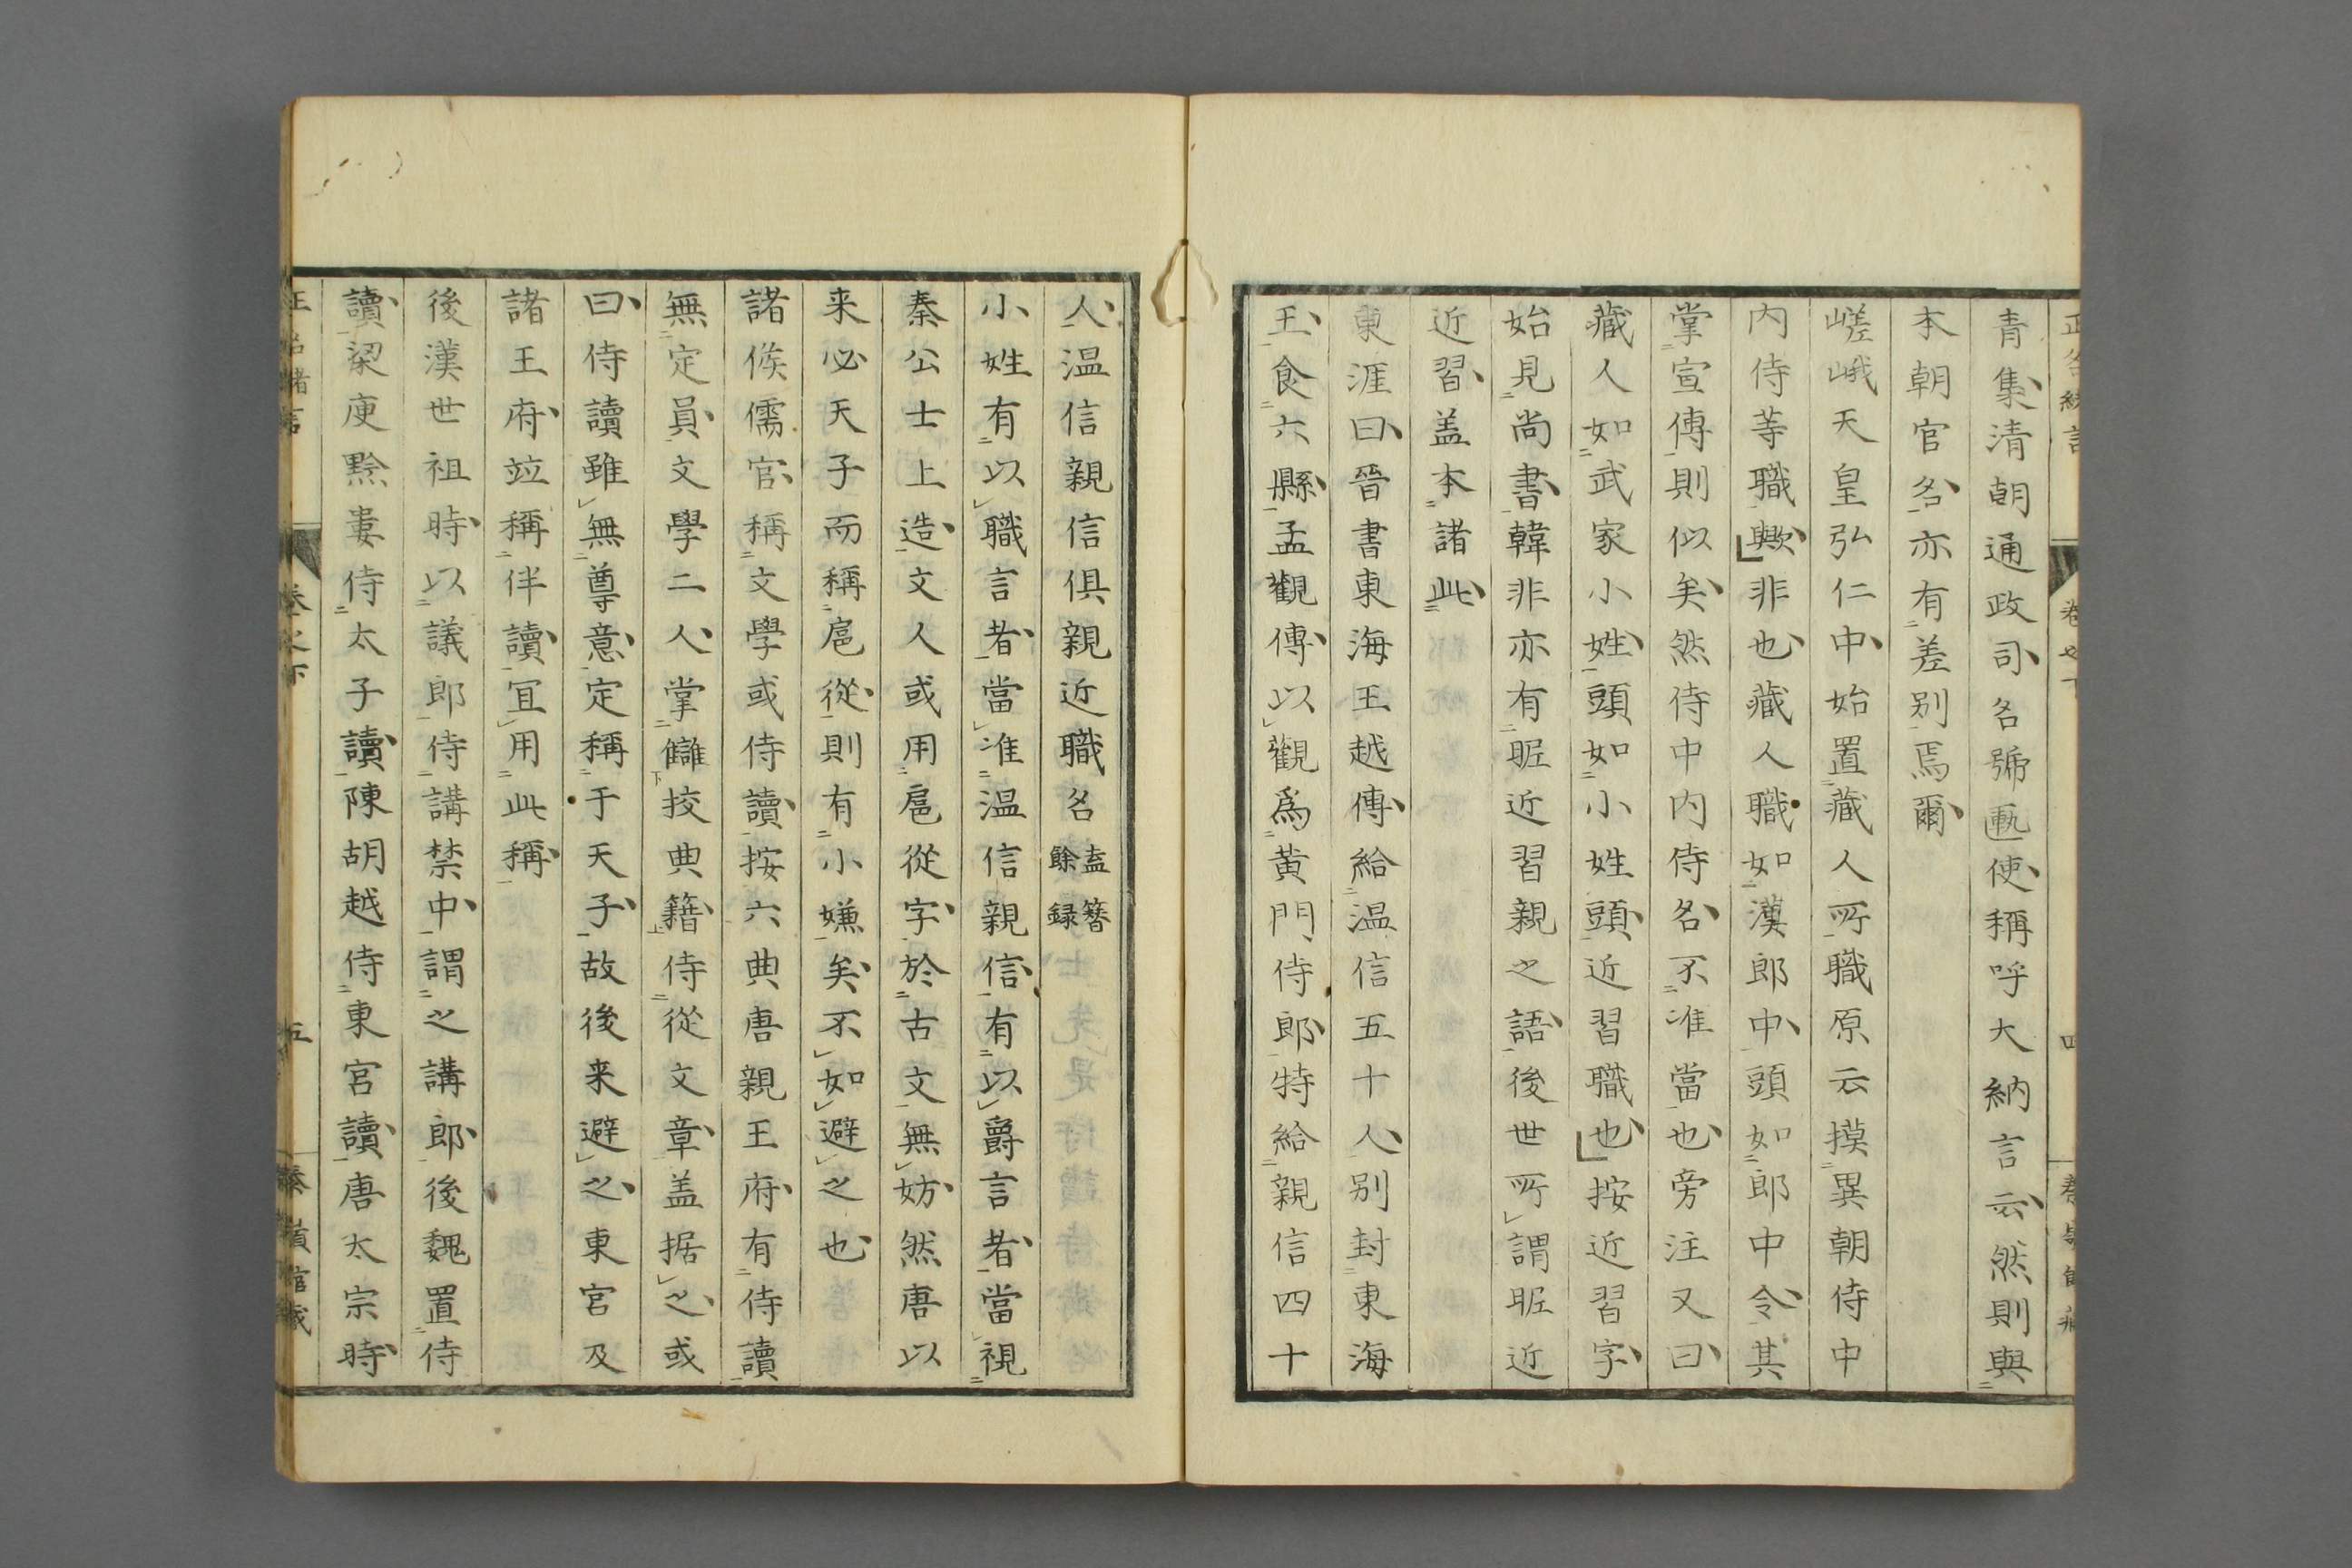 青集清朝通政司各號匭使稱呼大納言云然則與
本朝官名亦有差别焉爾
嵯峨天皇弘仁中始置藏人所職原云摸異朝侍中
内侍等職歟非也藏人職如漢郎中頭如郎中令其
掌宣傳則似矣然侍中内侍名不准當也旁注又曰
藏人如武家小姓頭如小姓頭近習職也按近習字
始見尚書韓非亦有昵近習親之語後世所謂昵近
近習盖本諸此
東涯曰晉書東海王越傳給温信五十人别封東海
王食六縣孟觀傳以觀爲黄門侍郎特給親信四十
人温信親信俱親近職名盍簪餘録
小姓有以職言者當准温信親信有以爵言者當視
秦公士上造文人或用扈從字於古文無妨然唐以
来必天子而稱扈從則有小嫌矣不如避之也
諸侯儒官稱文學或侍讀按六典唐親王府有侍讀
無定員文學二人掌讎挍典籍侍從文章盖据之或
曰侍讀雖無尊意定稱于天子故後来避之東宮及
諸王府竝稱伴讀冝用此稱
後漢世祖時以議郎侍講禁中謂之講郎後魏置侍
讀梁庾黔婁侍太子讀陳胡越侍東宮讀唐太宗時
卷之下
五